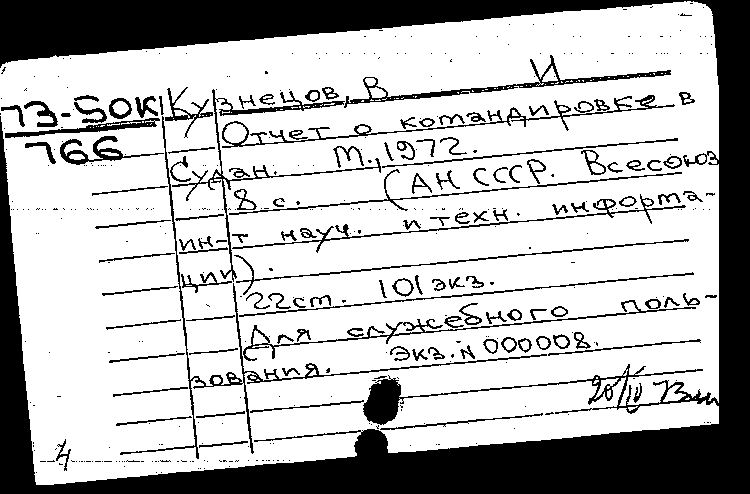 73-50К
766
Кузнецов, В И
Отчет о командировке в
Судан. М., 1972.
8 с. (АН СССР. Всесоюз
ин-т науч. и техн. информа-
ции).
22 см. 101 экз.
Для служебного поль-
зования. Экз. N 000008.
20/IV 73